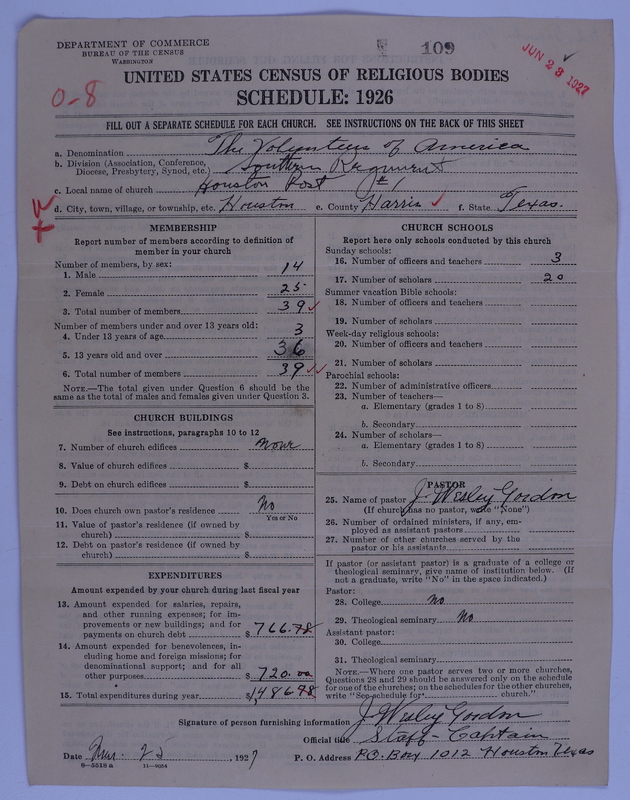 DEPARTMENT OF COMMERCE
BUREAU OF THE CENSUS
WASHINGTON
109
JUN 23 1927
UNITED STATES CENSUS OF RELIGIOUS BODIES
SCHEDULE: 1926
0-8
FILL OUT A SEPARATE SCHEDULE FOR EACH CHURCH. SEE INSTRUCTIONS ON THE BACK OF THIS SHEET
a. Denomination The Volunteers of America
b. Division (Association, Conference, Diocese, Presbytery, Synod, etc.) Southern Regiment
c. Local name of church Houston Post #1
d. City, town, village, or township, etc. Houston e. County Harris f. State Texas.
MEMBERSHIP
Report number of members according to definition of
member in your church
Number of members, by sex:
1. Male 14
2. Female 25
3. Total number of members 39
Number of members under and over 13 years old:
4. Under 13 years of age 3
5. 13 years old and over 36
6. Total number of members 39
NOTE.—The total given under Question 6 should be the
same as the total of males and females given under Question 3.
CHURCH BUILDINGS
See instructions, paragraphs 10 to 12
7. Number of church edifices None
8. Value of church edifices $
9. Debt on church edifices $
10. Does church own pastor's residence No
Yes or No
11. Value of pastor's residence (if owned by
church) $
12. Debt on pastor's residence (if owned by
church) $
EXPENDITURES
Amount expended by church during last fiscal year
13. Amount expended for salaries, repairs,
and other running expenses; for im-
provements or new buildings; and for
payments on church debt $ 766.78
14. Amount expended for benevolences, in-
cluding home and foreign missions; for
denominational support; and for all
other purposes $ 720.00
15. Total expenditures during year $ 1,486.78
CHURCH SCHOOLS
Report here only schools conducted by this church
Sunday schools:
16. Number of officers and teachers 3
17. Number of scholars 20
Summer vacation Bible schools:
18. Number of officers and teachers
19. Number of scholars
Week-day religious schools:
20. Number of officers and teachers
21. Number of scholars
Parochial schools:
22. Number of administrative officers
23. Number of teachers—
a. Elementary (grades 1 to 8)
b. Secondary
24. Number of scholars—
a. Elementary (grades 1 to 8)
b. Secondary
PASTOR
25. Name of pastor J. Wesley Gordon
(If church has no pastor, write "None")
26. Number of ordained ministers, if any, em-
ployed as assistant pastors
27. Number of other churches served by the
pastor or his assistants
If pastor (or assistant pastor) is a graduate of a college or
theological seminary, give name of institution below. (If
not a graduate, write "No" in the space indicated.)
Pastor:
28. College No
29. Theological seminary No
Assistant pastor:
30. College
31. Theological seminary
NOTE.—Where one pastor serves two or more churches,
Questions 28 and 29 should be answered only on the schedule
for one of the churches; on the schedules for the other churches,
write "See schedule for church."
Signature of person furnishing information J. Wesley Gordon
Official title Staff-Captain
Date 25, 1927 P. O. Address P.O. Box 1012 Houston Texas
8-5518a 11-9054